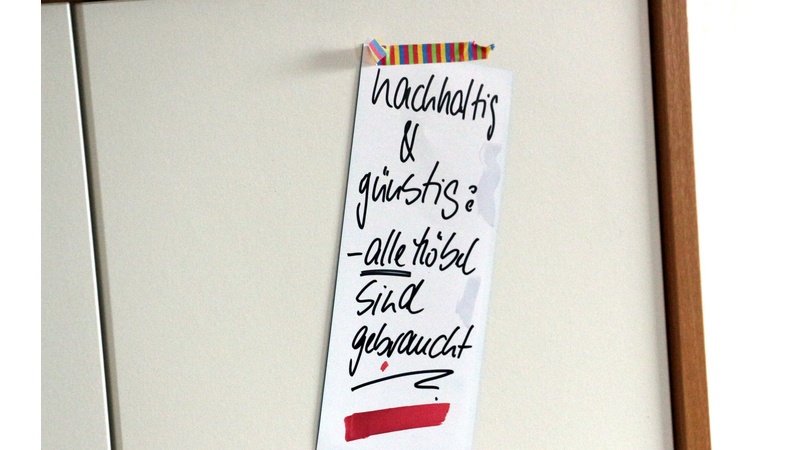 nachhaltig
&
günstig:
- alle Möbel
sind
gebraucht